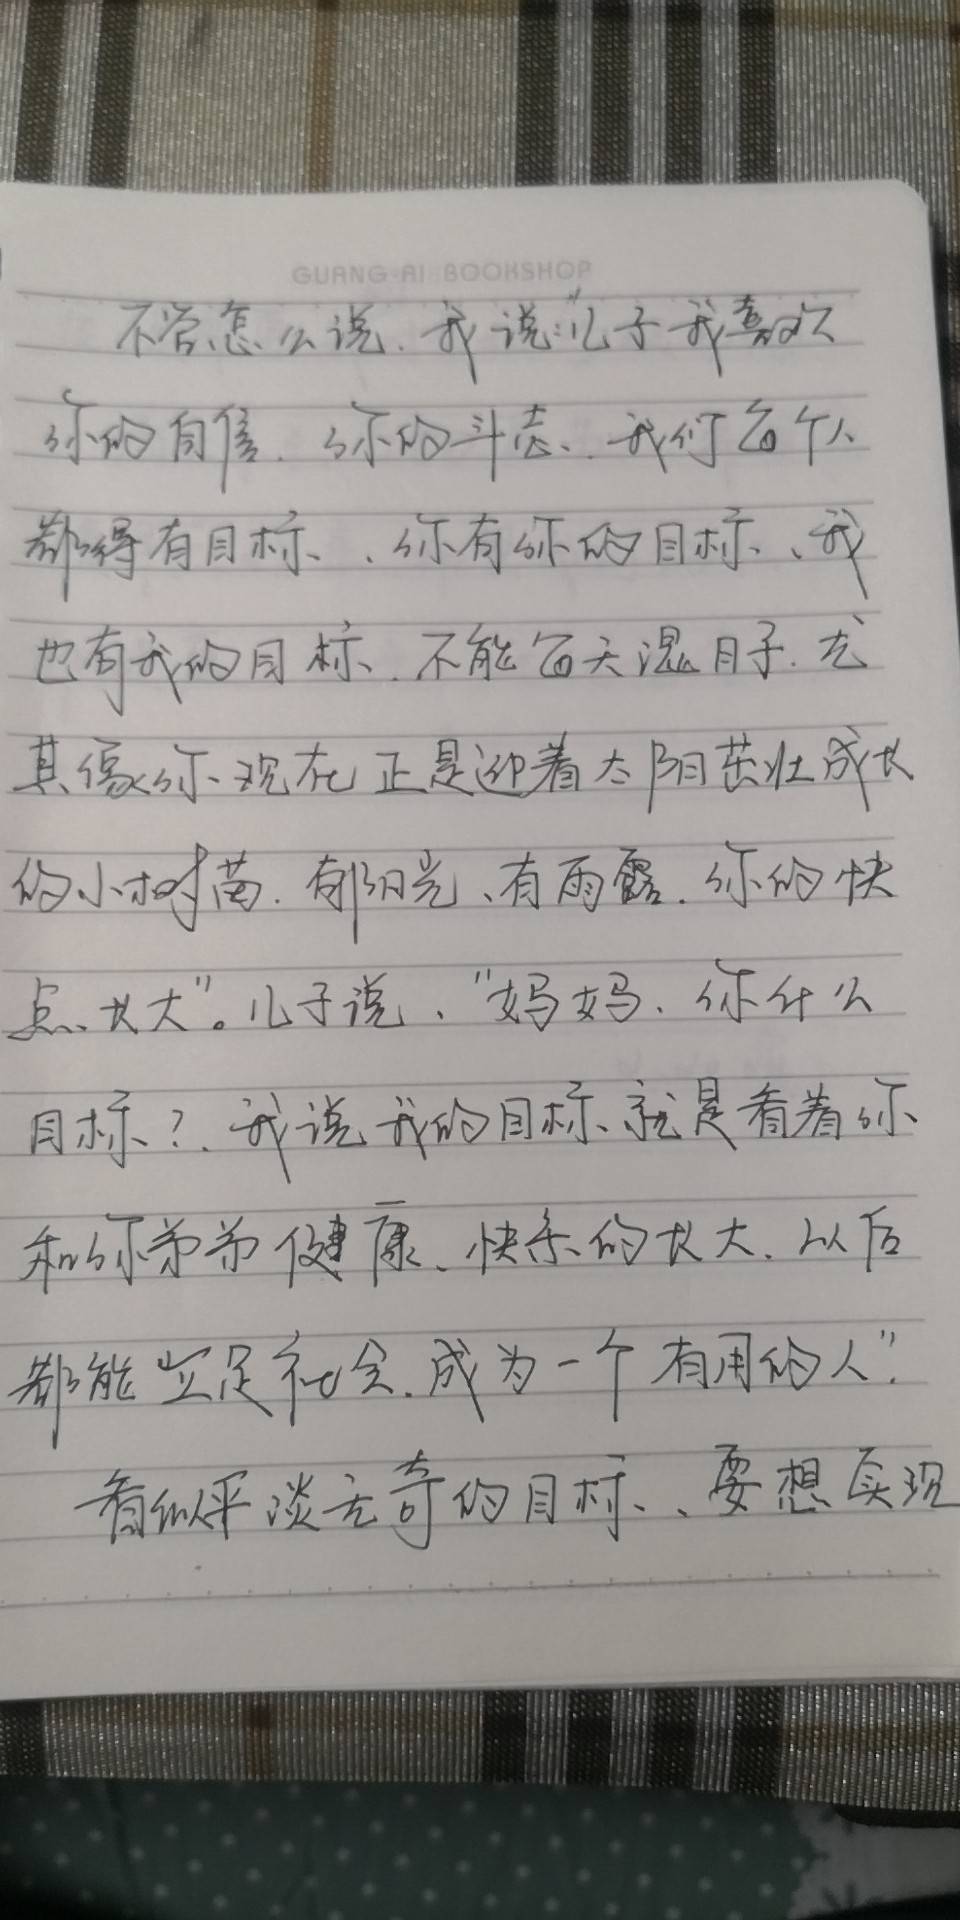 GUANG AI BOOKSHOP
不管怎么说，我说：“儿子我喜欢
你的自信，你的斗志，我们每个人
都得有目标，你有你的目标、我
也有我的目标，不能每天混日子，尤
其像你现在正是迎着太阳茁壮成长
的小树苗，有阳光、有雨露，你的快
点长大”。儿子说，“妈妈，你什么
目标？，我说我的目标就是看着你
和你弟弟健康、快乐的长大，以后
都能立足社会，成为一个有用的人”，
看似平淡无奇的目标、要想实现